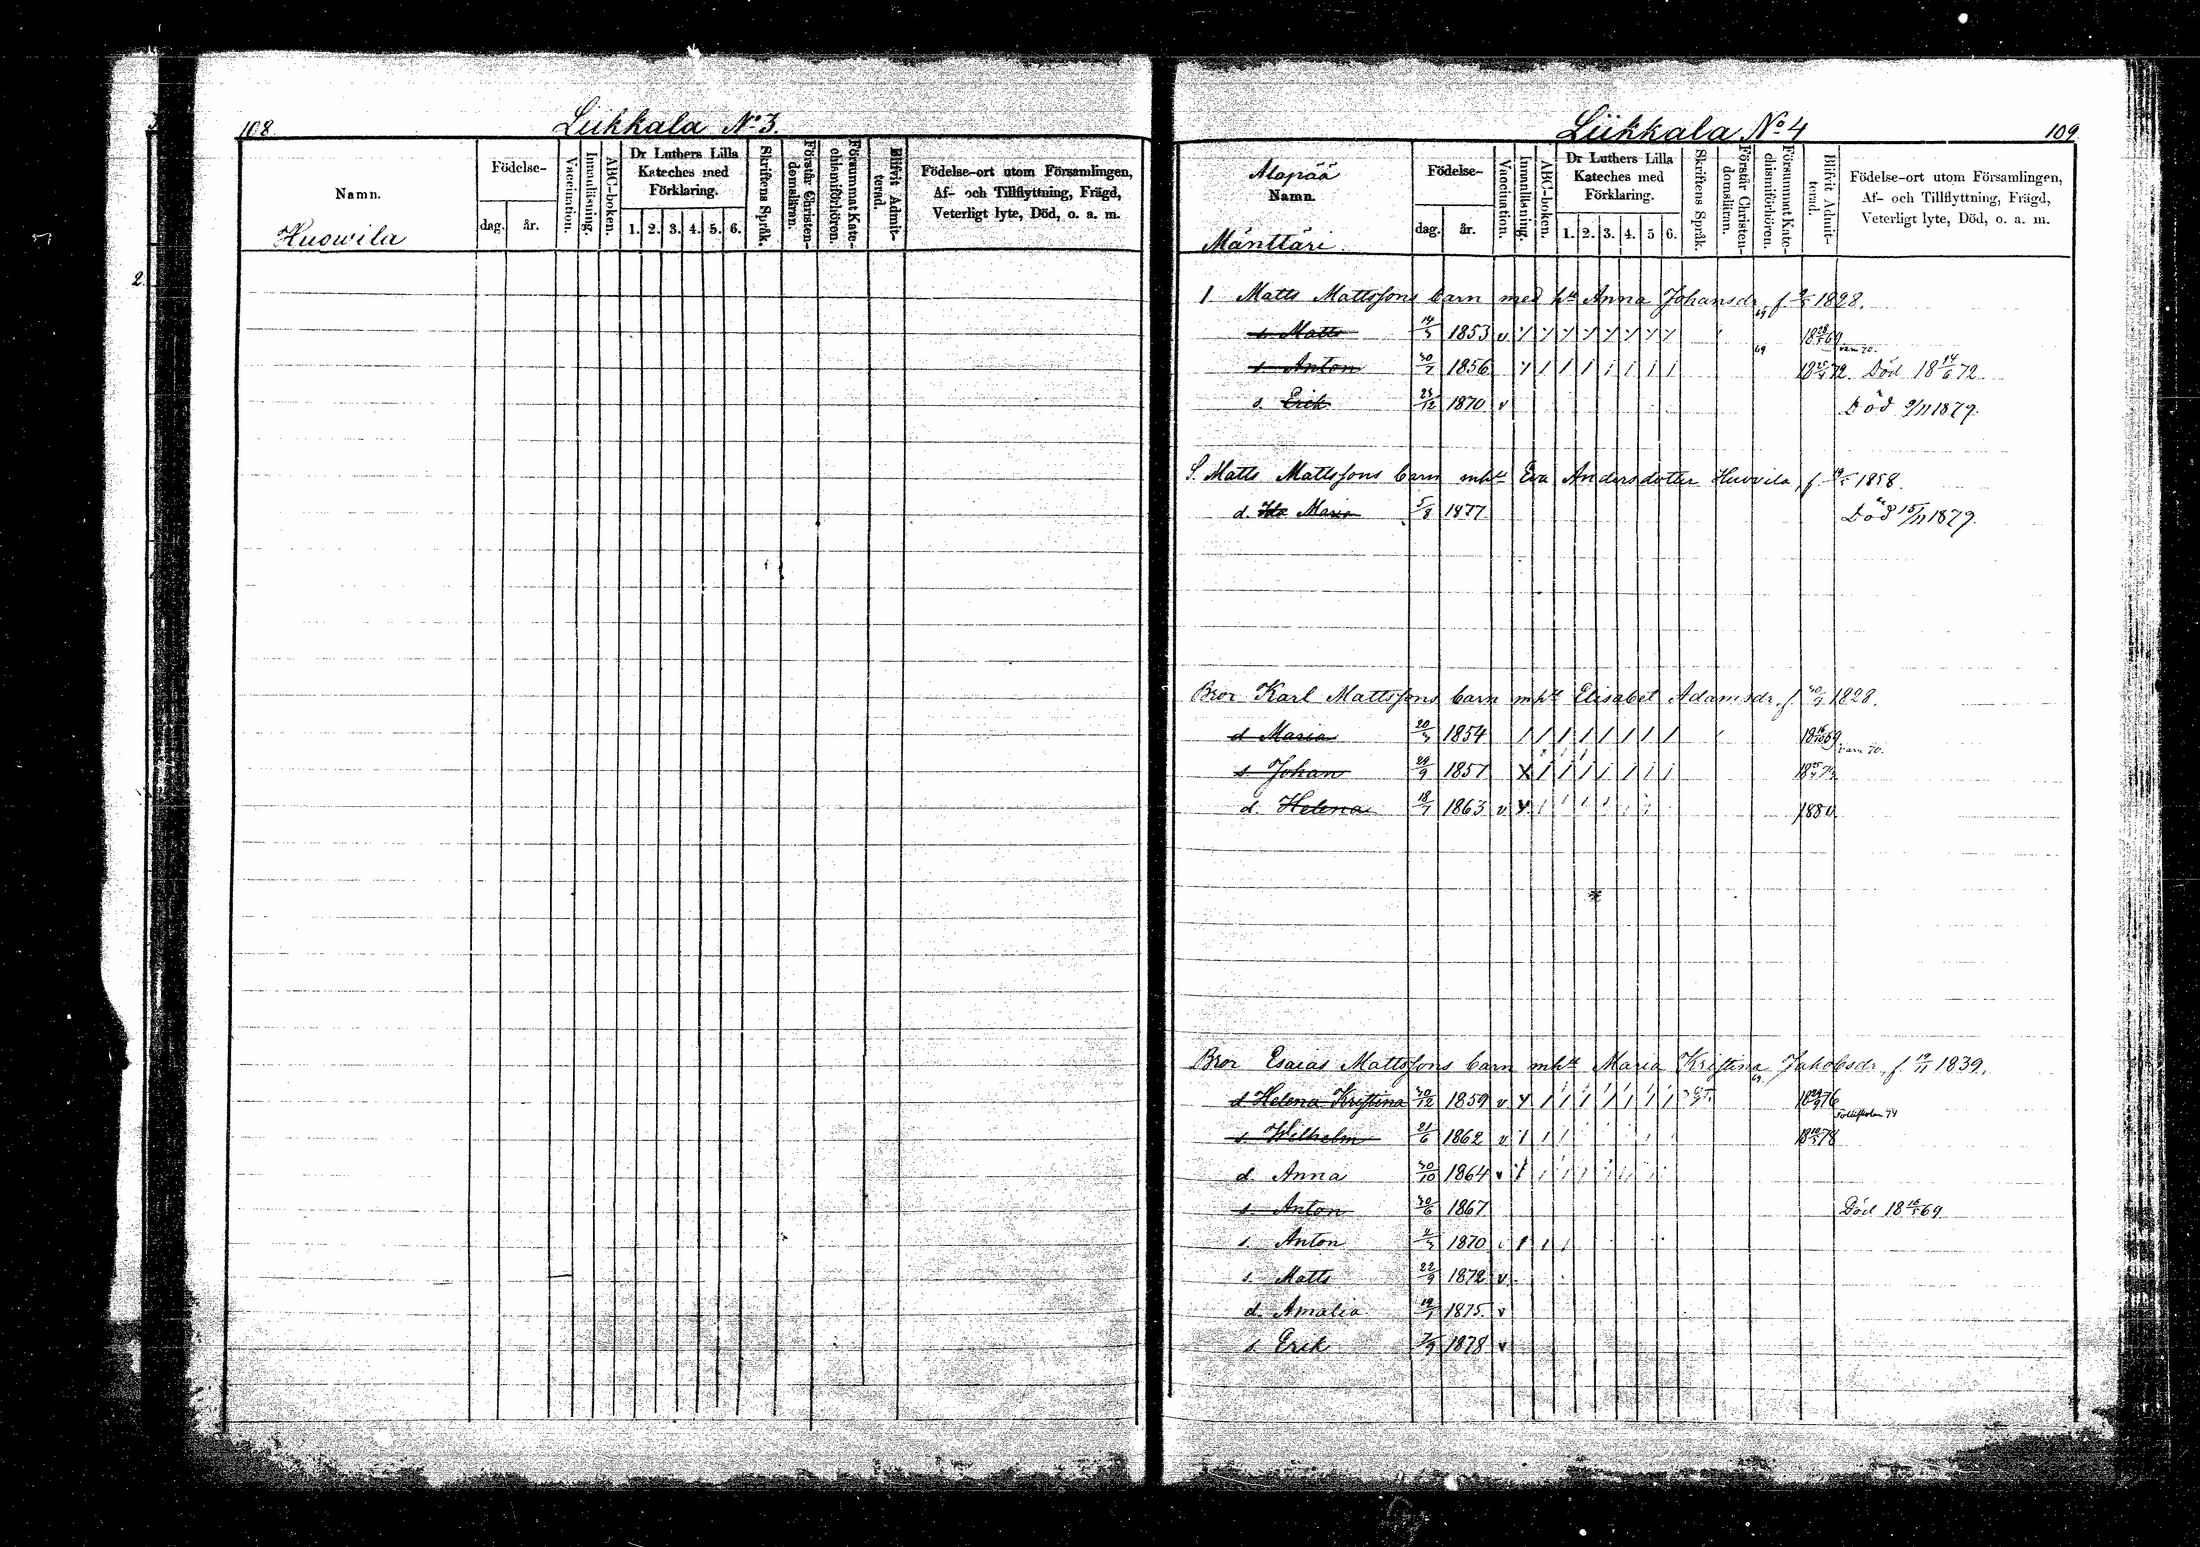 108
Liikkala No 3.
Namn.
Huowila
Födelse-
dag.
år.
Vaccination.
Innanläsning.
ABC-boken.
Dr Luthers Lilla
Kateches med
Förklaring.
1. 2. 3. 4. 5. 6.
Skriftens Språk.
Förstår Christen-
domsläran.
Försummat Kate-
chismiförhören.
Blifvit Admit-
terad.
Födelse-ort utom Församlingen,
Af- och Tillflyttning, Frägd,
Veterligt lyte, Död, o. a. m.
2.
Liikkala No 4
109
Alapää
Namn.
Mänttäri
Födelse-
dag.
år.
Vaccination.
Innanläsning.
ABC-boken.
Dr Luthers Lilla
Kateches med
Förklaring.
1. 2. 3. 4. 5 6.
Skriftens Språk.
Förstår Christen-
domsläran.
Försummat Kate-
chismiförhören.
Blifvit Admit-
terad.
Födelse-ort utom Församlingen,
Af- och Tillflyttning, Frägd,
Veterligt lyte, Död, o. a. m.
1 Matts Mattssons barn med ht Anna Johansdr, f 1828.
s. Matts 1853 v 69
s. Anton 1856 69 72. Död 18 14/6 72.
s. Erik 1870 v Död 9/11 1879.
S. Matts Mattssons barn mht Eva Andersdotter Huovila, f 1858.
d. Ida Maria 5/8 1877 Död 15/11 1879.
Bror Karl Mattssons barn mht Elisabet Adamsdr, f 1828.
d Maria 1854 69
s Johan 29/9 1857
d. Helena 18/1 1863 v 1880.
Bror Esaias Mattssons barn mht Maria Kristina Jakobsdr, f 19/11 1839.
d Helena Kristina 30/12 1859 v 76
s. Wilhelm 21/6 1862 v 78
d. Anna 30/10 1864 v
s. Anton 30/6 1867 Död 69.
s. Anton 1870
s. Matts 22/9 1872 v
d. Amalia 1875. v
s. Erik 1878 v